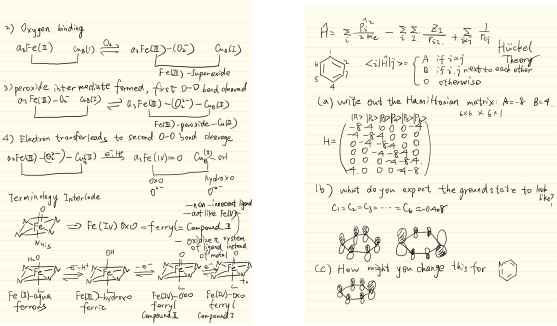 2) Oxygen binding
a3Fe(II) CuB(I) O2 ⇌ a3Fe(III)-(O2⁻) CuB(I)
Fe(III)-superoxide
3) peroxide intermediate formed, first O-O bond cleaved
a3Fe(III)-O2⁻ CuB(I) ⇌ a3Fe(III)-(O2²⁻)-CuB(II)
Fe(III)-peroxide-Cu(II)
4) Electron transfer leads to second O-O bond cleavage
a3Fe(III)-(O2²⁻)-CuB(II) e⁻ H⁺ → a3Fe(IV)=O CuB(II)-OH
oxo hydroxo
O²⁻ O²⁻
Terminology Interlude
- non-innocent ligand
- act like Fe(IV)
⇒ Fe(IV) oxo = ferryl = Compound II
- oxidize π system of ligand instead of metal
NHis
H2O OH O O
Fe -e⁻-H⁺ Fe -e⁻ Fe -e⁻ Fe
L L L L
Fe(II)-aqua Fe(III)-hydroxo Fe(IV)-oxo Fe(IV)-oxo
ferrous ferric ferryl ferryl
Compound II Compound I
Ĥ = Σi p̂i²/2me - Σ Σ ZI/riI + Σ 1/rij
Hückel Theory
<i|Ĥ|j> = { A if i=j
B if i,j next to each other
0 otherwise
1
6
5
4
(a) write out the Hamiltonian matrix: A=-8 B=-4.
6×6 × 6×1
H =
-8 -4 0 0 0 -4
-4 -8 -4 0 0 0
0 -4 -8 -4 0 0
0 0 -4 -8 -4 0
0 0 0 -4 -8 -4
-4 0 0 0 -4 -8
(b) what do you expect the ground state to look like?
C1=C2=C3=....=C6=0.408
(c) How might you change this for
N